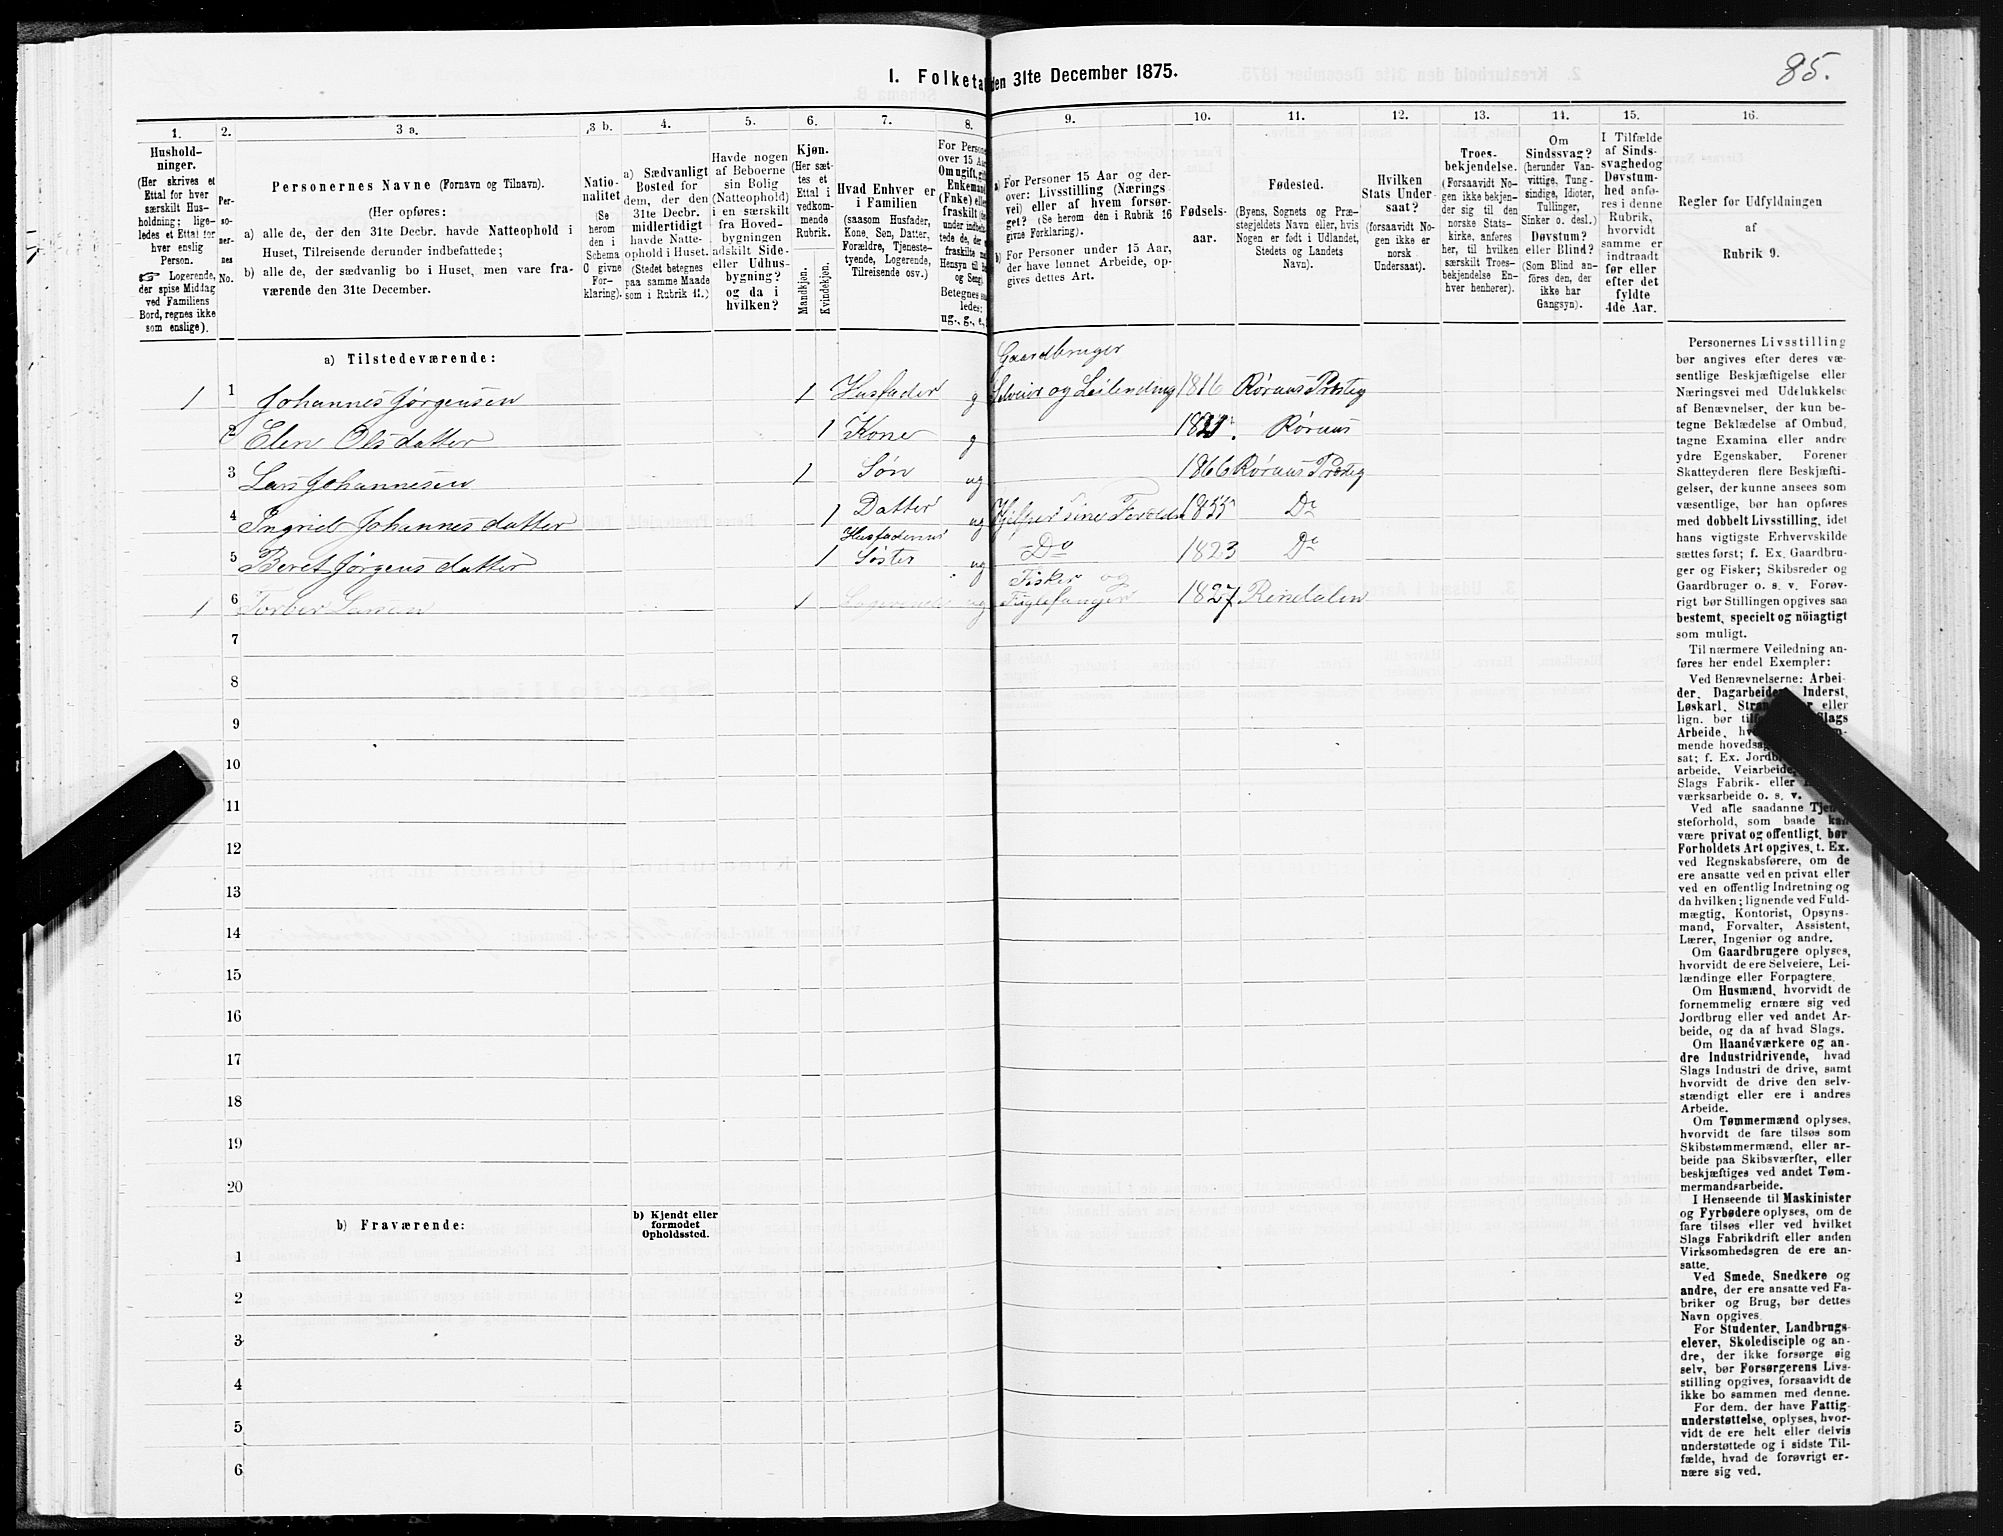 85.
I. Folketa den 31te December 1875.
1.
Hushold-
ninger.
(Her skrives et
Ettal for hver
særskilt Hus-
holdning; lige-
ledes et Ettal for
hver enslig
Person.
☞ Logerende,
der spise Middag
ved Familiens
Bord, regnes ikke
som enslige).
2.
Per-
so-
ner-
nes
No.
3 a.
Personernes Navne (Fornavn og Tilnavn).
(Her opføres:
a) alle de, der den 31te Decbr. havde Natteophold i
Huset, Tilreisende derunder indbefattede;
b) alle de, der sædvanlig bo i Huset, men vare fra-
værende den 31te December.
3 b.
Natio-
nalitet
(Se
herom
den i
Schema
O givne
For-
klaring).
4.
a) Sædvanligt
Bosted for
dem, der den
31te Decbr.
midlertidigt
havde Natte-
ophold i Huset.
(Stedet betegnes
paa samme Maade
som i Rubrik 11.)
5.
Havde nogen
af Beboerne
sin Bolig
(Natteophold)
i en særskilt
fra Hoved-
bygningen
adskilt Side-
eller Udhus-
bygning?
og da i
hvilken?
6.
Kjøn.
(Her sæt-
tes et
Ettal i
vedkom-
mende
Rubrik.
Mandkjøn.
Kvindekjøn.
7.
Hvad Enhver er
i Familien
(saasom Husfader,
Kone, Søn, Datter,
Forældre, Tjeneste-
tyende, Logerende,
Tilreisende osv.)
8.
For Persone
over 15 Aar
Om ugift, gift
Enkemand
(Fnke) elle
fraskilt
under indbe
tede de, der
fraskilte
Hensyn til b
og Seng).
Betegnes
ledes:
ug., g., e.,
9.
a) For Personer 15 Aar og der-
over: Livsstilling (Nærings-
vei) eller af hvem forsør-
get? (Se herom den i Rubrik 16
givne Forklaring).
b) For Personer under 15 Aar,
der have lønnet Arbeide, op-
gives dettes Art.
10.
Fødsels-
aar.
11.
Fødested.
(Byens, Sognets og Præ-
stegjeldets Navn eller, hvis
Nogen er født i Udlandet,
Stedets og Landets
Navn).
12.
Hvilken
Stats Under-
saat?
(forsaavidt No-
gen ikke er
norsk
Undersaat).
13.
Troes-
bekjendelse.
(Forsaavidt No-
gen ikke bekjen-
der sig til den
norske Stats-
kirke, anføres
her, til hvilken
særskilt Troes-
bekjendelse En-
hver henhører).
14.
Om
Sindssvag?
(herunder Van-
vittige, Tung-
sindige, Idioter,
Tullinger,
Sinker o. desl.)
Døvstum?
eller Blind?
(Som Blind an-
føres den, der
ikke har
Gangsyn).
15.
I Tilfælde
af Sinds-
svaghed og
Døvstum-
hed anfø-
res i denne
Rubrik,
hvorvidt
samme er
indtraadt
før eller
efter det
fyldte
4de Aar.
16.
Regler for Udfyldningen
af
Rubrik 9.
a) Tilstedeværende:
Gaardbruger
1 1 Johannes Jørgensen 1 Husfader g Selveier og Leilending 1816 Røraas Præstg
2 Elen Olsdatter 1 Kone g Røraas
3 Lars Johannesen 1 Søn ug 1866 Røraas Præstg
4 Ingrid Johannesdatter 1 Datter ug Hjelper sine Forældre 1855 Do
5 Beret Jørgensdatter 1 Husfaderens Søster ug Do 1823 Do
1 6 Torber Larsen 1 Logerende ug Fisker og Fuglefanger 1827 Rendalen
7
8
9
10
11
12
13
14
15
16
17
18
19
20
b) Fraværende:
b) Kjendt eller
formodet
Opholdssted.
1
2
3
4
5
6
Personernes Livsstilling
bør angives efter deres væ-
sentlige Beskjæftigelse eller
Næringsvei med Udelukkelse
af Benævnelser, der kun be-
tegne Beklædelse af Ombud,
tagne Examina eller andre
ydre Egenskaber. Forener
Skatteyderen flere Beskjæfti-
gelser, der kunne ansees som
væsentlige, bør han opføres
med dobbelt Livsstilling, idet
hans vigtigste Erhvervskilde
sættes først; f. Ex. Gaardbru-
ger og Fisker; Skibsreder og
Gaardbruger o. s. v. Forøv-
rigt bør Stillingen opgives saa
bestemt, specielt og nöiagtigt
som muligt.
Til nærmere Veiledning an-
føres her endel Exempler:
Ved Benævnelserne: Arbei-
der, Dagarbeider, Inderst,
Løskarl, eller
lign. bør Slags
Arbeide,
mende hovedsag
sat; f. Ex. Jordb
arbeide, Veiarbeide,
Slags Fabrik- eller
værksarbeide o. s. v.
Ved alle saadanne Tjen
steforhold, som baade kan
være privat og offentligt, bør
Forholdets Art opgives, t. Ex.
ved Regnskabsførere, om de
ere ansatte ved en privat eller
ved en offentlig Indretning og
da hvilken; lignende ved Fuld-
mægtig, Kontorist, Opsyns-
mand, Forvalter, Assistent,
Lærer, Ingeniør og andre.
Om Gaardbrugere oplyses,
hvorvidt de ere Selveiere, Lei-
lændinge eller Forpagtere.
Om Husmænd, hvorvidt de
fornemmelig ernære sig ved
Jordbrug eller ved andet Ar-
beide, og da af hvad Slags.
Om Haandværkere og an-
dre Industridrivende, hvad
Slags Industri de drive, samt
hvorvidt de drive den selv-
stændigt eller ere i andres
Arbeide.
Om Tømmermænd oplyses,
hvorvidt de fare tilsøs som
Skibstømmermænd, eller ar-
beide paa Skibsværfter, eller
beskjæftiges ved andet Tøm-
mermandsarbeide.
I Henseende til Maskinister
og Fyrbødere oplyses, om de
fare tilsøs eller ved hvilket
Slags Fabrikdrift eller anden
Virksomhedsgren de ere an-
satte.
Ved Smede, Snedkere og
andre, der ere ansatte ved Fa-
briker og Brug, bør dettes
Navn opgives.
For Studenter, Landbrugs-
elever, Skoledisciple og an-
dre, der ikke forsørge sig
selv, bør Forsørgerens Livs-
stilling opgives, forsaavidt de
ikke bo sammen med denne.
For dem, der have Fattig-
understøttelse, oplyses, hvor-
vidt de ere helt eller delvis
understøttede og i sidste Til-
fælde, hvad de forøvrigt er-
nære sig ved.